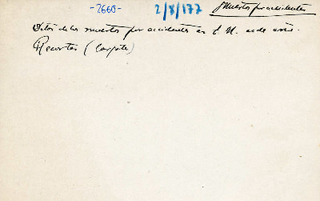 -2660- 2/8/177 Muertos por accidentes
de los muertos por accidentes en E.U. cada año.
Recortes (Carpeta)